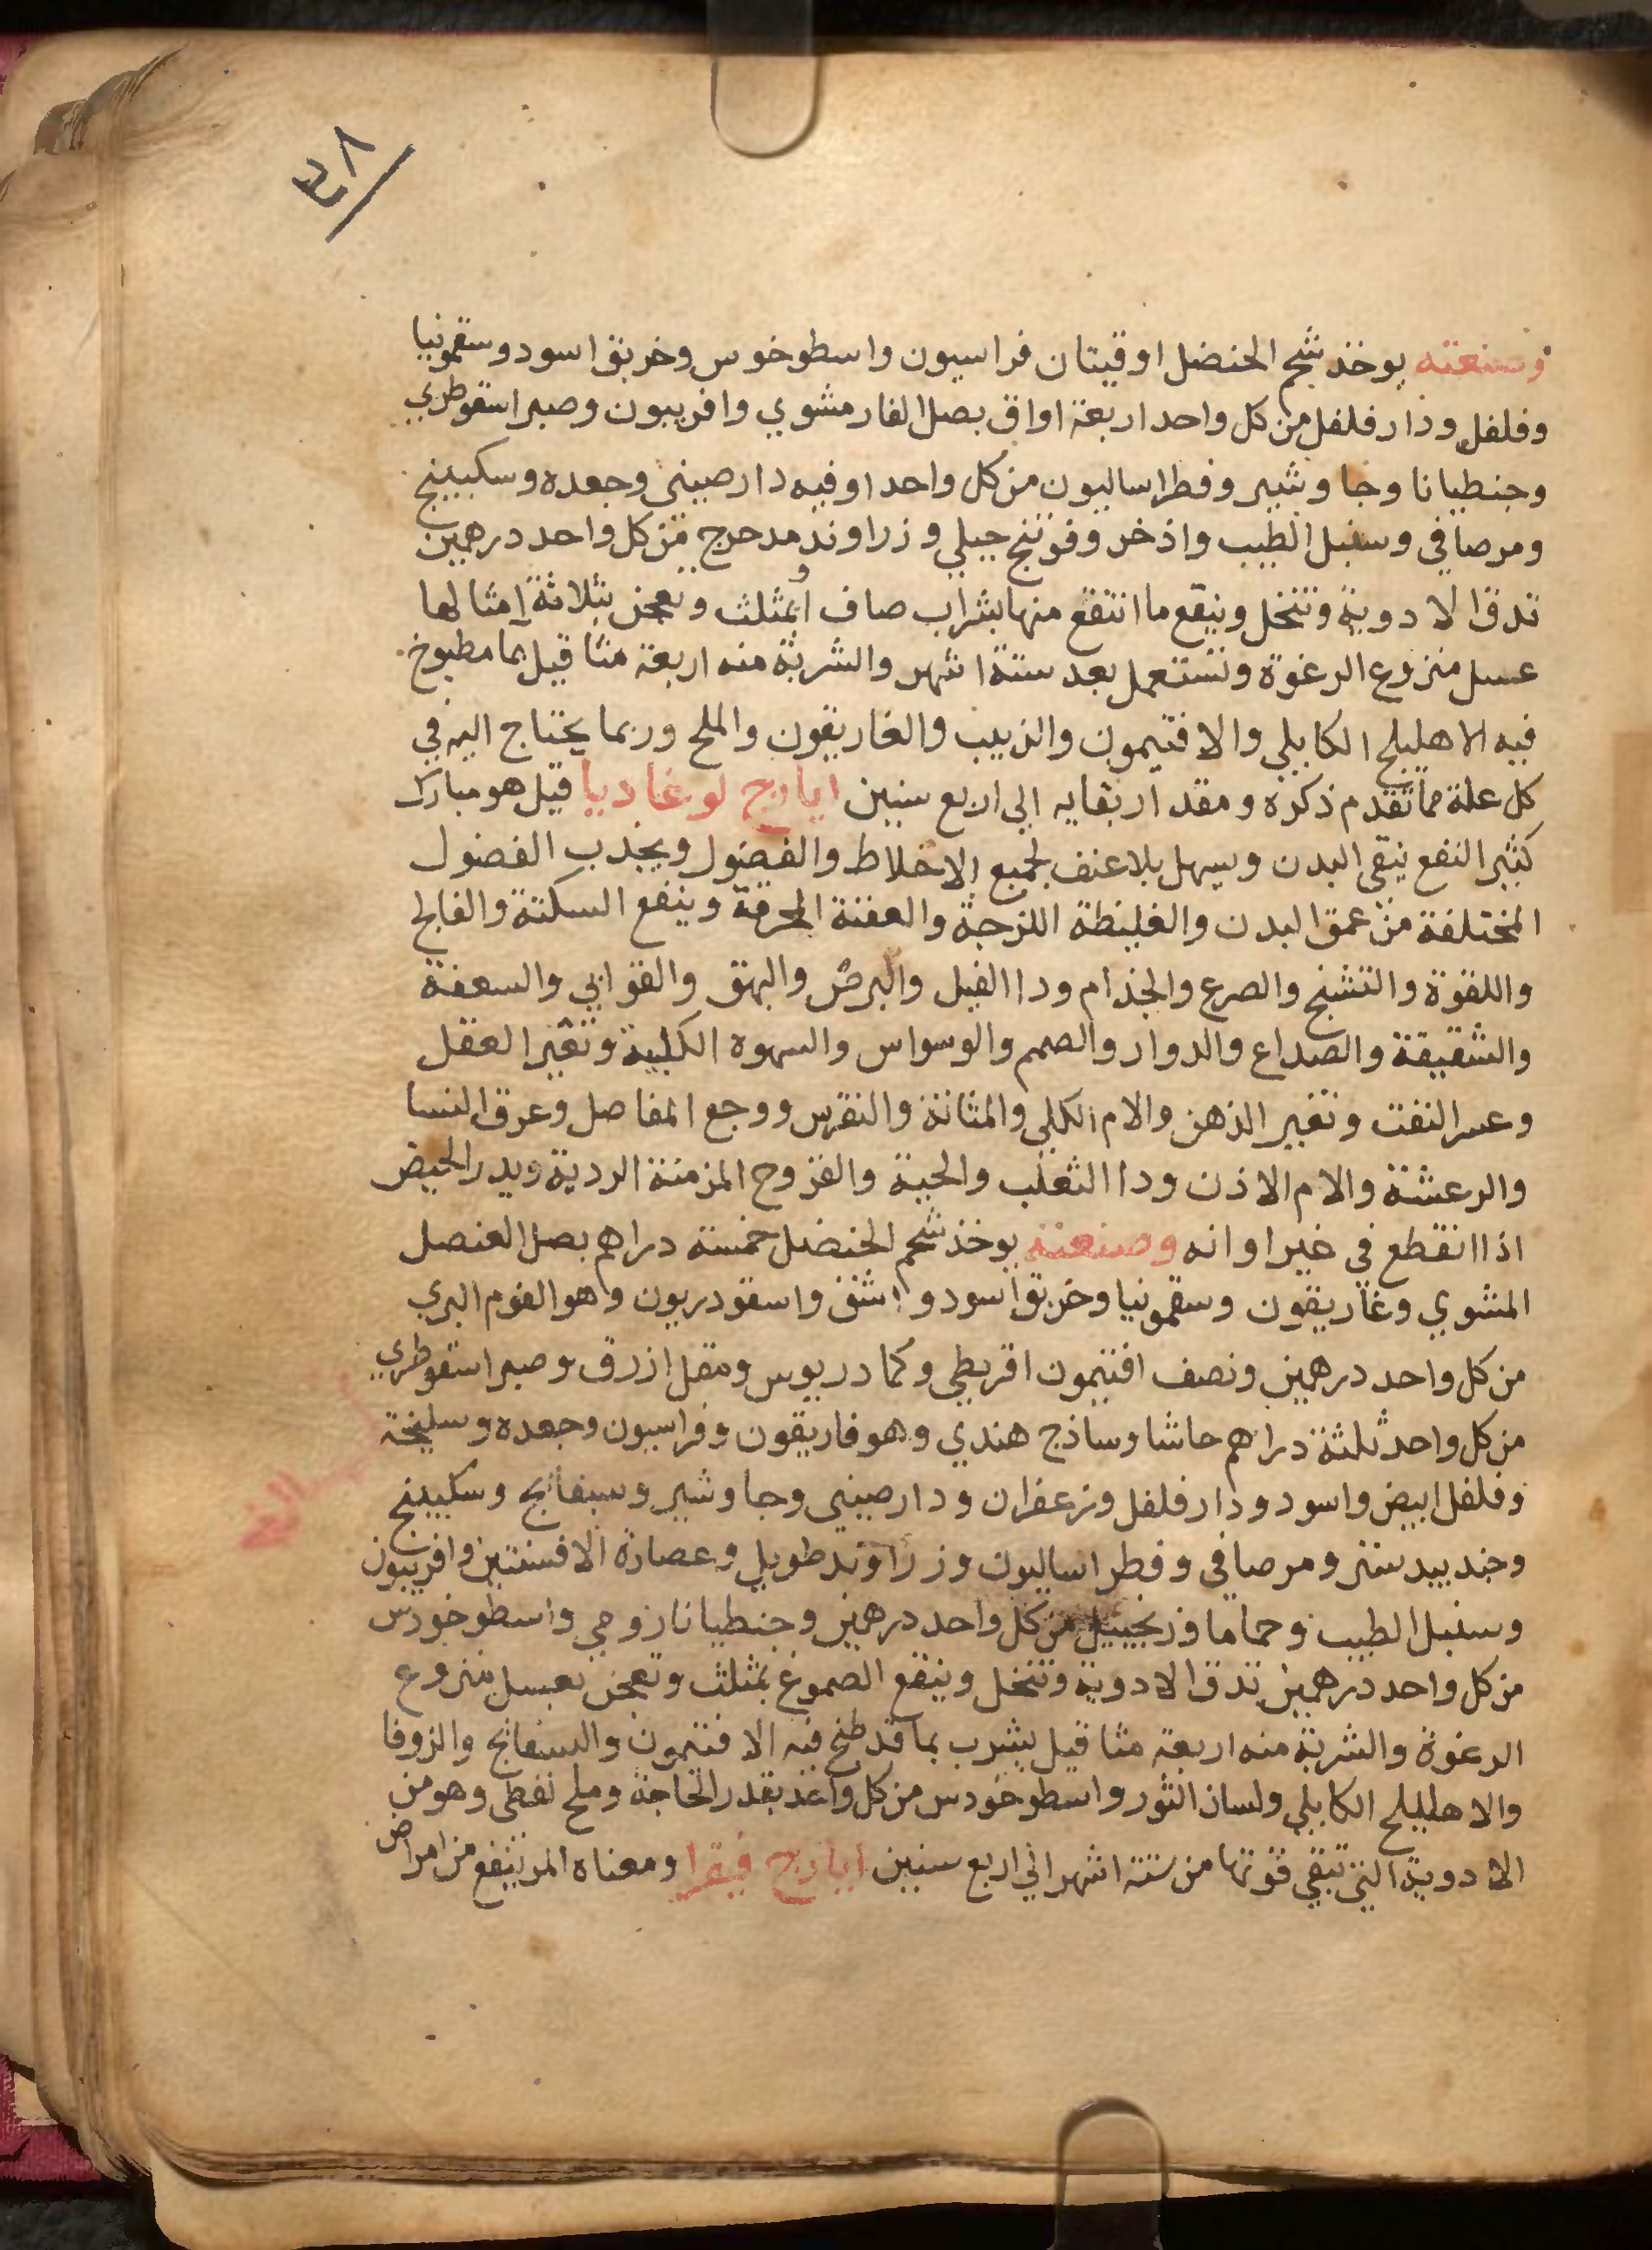 ٣٨
وصنعته يوخذ شحم الحنضل اوقيتان فراسيون واسطوخوس وخربق اسود وسقمونيا
وفلفل ودار فلفل من كل واحد اربعة اواق بصل الفار مشوي وافربيون وصبر اسقوطري
وجنطيانا وجاوشير وفطراساليون من كل واحد اوقيه دارصيني وجعده وسكبينج
ومر صافي وسنبل الطيب واذخر وفوتنج جبلي وزراوند مدحرج من كل واحد درهمين
تدق الادوية وتنخل وينقع ما انتقع منها بشراب صاف او بمثلث وتعجن بثلاثة امثالها
عسل منزوع الرغوة وتستعمل بعد ستة اشهر والشربة منه اربعة مثاقيل بما مطبوخ
فيه الاهليلج الكابلي والافتيمون والزبيب والغاريقون والملح وربما يحتاج اليه في
كل علة مما تقدم ذكره ومقدار بقايه الي اربع سنين ايارج لوغاديا قيل هو مبارك
كثير النفع ينقي البدن ويسهل بلا عنف لجميع الاخلاط والفضول ويجذب الفضول
المختلفة من عمق البدن والغليظة اللزجة والعفنة المحرقة وينفع السكتة والفالج
واللقوة والتشنج والصرع والجذام ودا الفيل والبرص والبهق والقوابي والسعفة
والشقيقة والصداع والدوار والصمم والوسواس والسهوه الكلبية وتغير العقل
وعسر النفت وتغيير الذهن والام الكلي والمثانة والنقرس ووجع المفاصل وعرق النسا
والرعشة والام الاذن ودا الثعلب والحية والقروح المزمنة الردية ويدر الحيض
اذا انقطع في غير اوانه وصنعته يوخذ شحم الحنضل خمسة دراهم بصل العنصل
المشوي وغاريقون وسقمونيا وخربق اسود واشق واسقودريون وهو الفوم البري
من كل واحد درهمين ونصف افتيمون اقريطي وكمادريوس ومقل ازرق وصبر اسقوطري
من كل واحد ثلثة دراهم حاشا وساذج هندي وهوفاريقون وفراسيون وجعده وسليخة
وفلفل ابيض واسود ودار فلفل وزعفران ودارصيني وجاوشير وسبفايج وسكبينج
وجندبيدستر ومر صافي وفطراساليون وزراوند طويل وعصارة الافسنتين وافربيون
وسنبل الطيب وحماما وزنجبيل من كل واحد درهمين وجنطيانا رومي واسطوخودس
من كل واحد درهمين تدق الادوية وتنخل وينقع الصموغ بمثلث وتعجن بعسل منزوع
الرغوة والشربة منه اربعة مثاقيل يشرب بما قد طبخ فيه الافتيمون والبسفايج والزوفا
والاهليلج الكابلي ولسان الثور واسطوخودس من كل واحد بقدر الحاجة وملح نفطي وهو من
الادوية التي تبقي قوتها من ستة اشهر الي اربع سنين ايارج فيقرا ومعناه المر ينفع من امراض